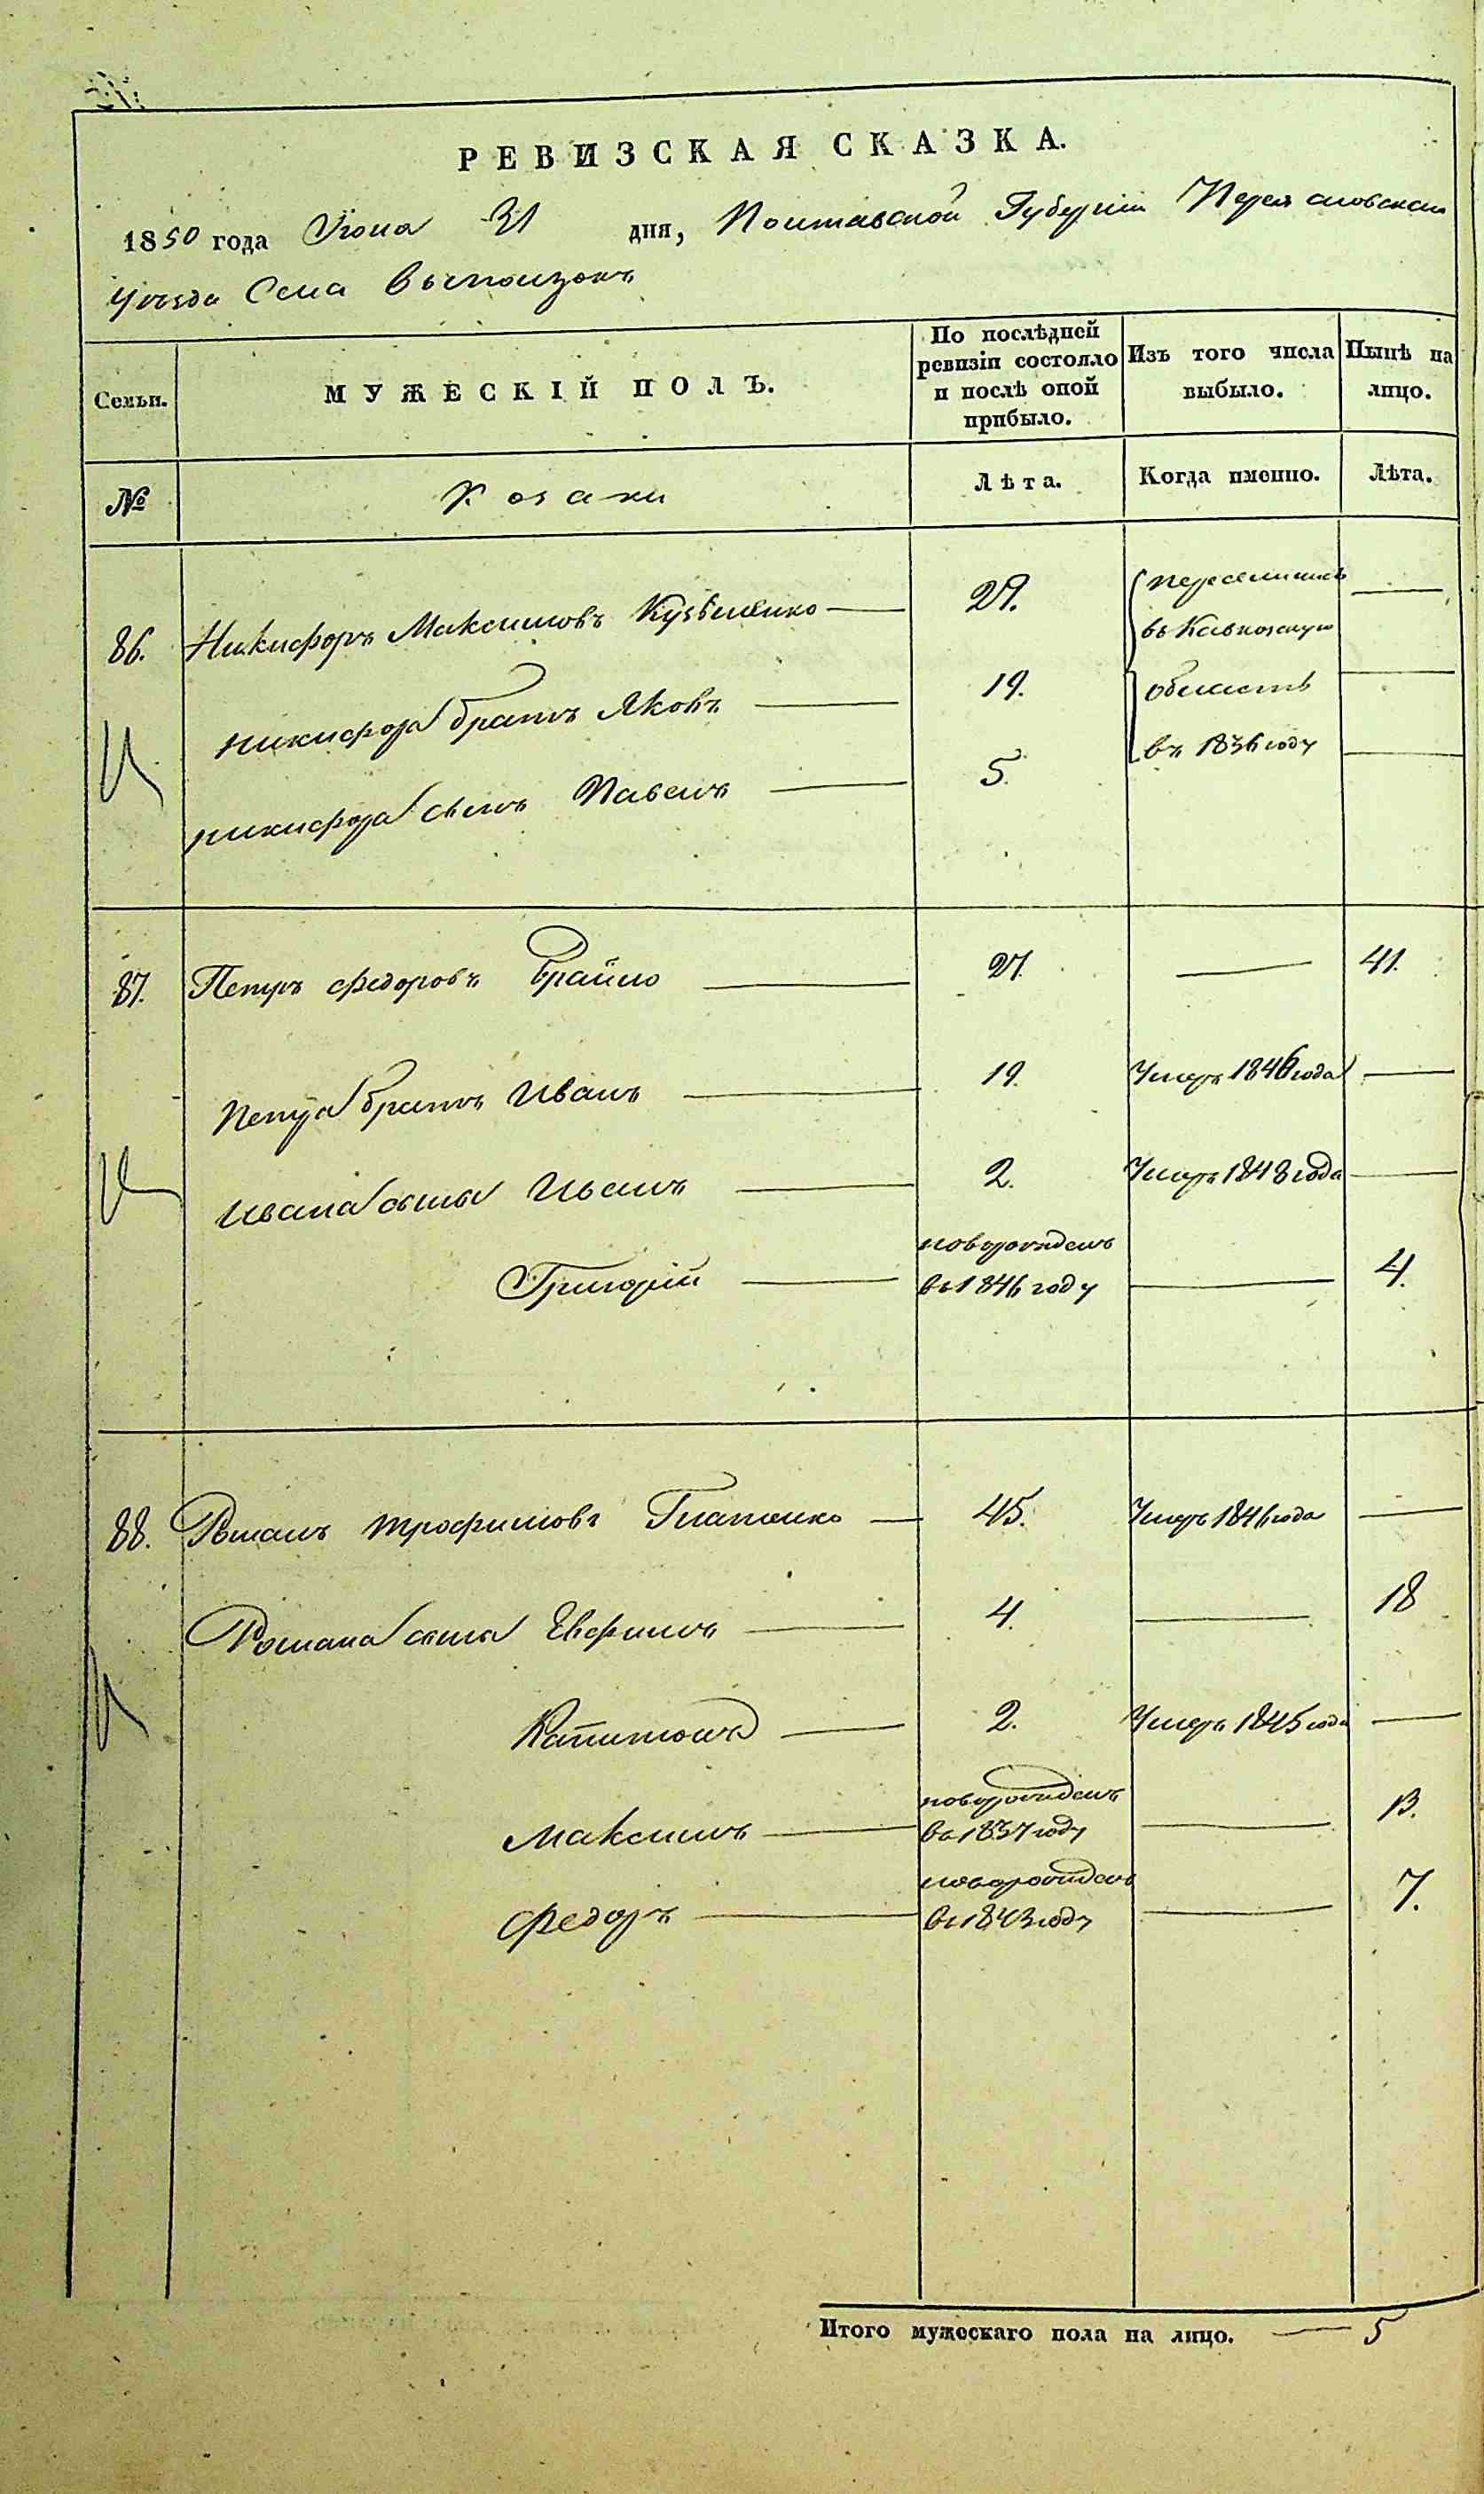 РЕВИЗСКАЯ СКАЗКА.
1850 года Июня 31 дня, Полтавской Губерніи Переясловскаго
Уѣзда Села Выползокъ
Семьи.
МУЖЕСКІЙ ПОЛЪ.
По послѣдней ревизіи состояло и послѣ оной прибыло.
Изъ того числа выбыло.
Нынѣ на лицо.
№
Козаки
Лѣта.
Когда именно.
Лѣта.
86. Никифоръ Максимовъ Кузьменко — 29. переселились —
въ Кавказскую
Никифора братъ Яковъ — 19. область —
Никифора сынъ Павелъ — 5. въ 1836 году —
87. Петръ Федоровъ — 27. — 41.
Петра братъ Иванъ — 19. Умеръ 1846 года —
Ивана сыны — 2. Умеръ 1848 года —
Григорій — новорожденъ въ 1846 году — 4.
88. Романъ Трофимовъ — 45. Умеръ 1846 года —
Романа сыны Евфимъ — 4. — 18
Капитонъ — 2. Умеръ 1845 года —
Максимъ — новорожденъ въ 1837 году — 13.
Федоръ — новорожденъ въ 1843 году — 7.
Итого мужескаго пола на лицо. — 5